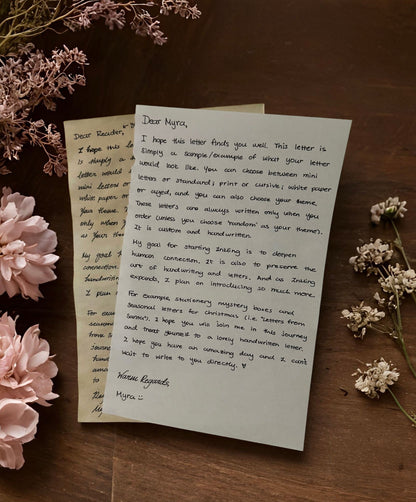 Dear Reader,
I hope this
is simply a
letter would
mini letters or
white paper
your theme.
only when
as your
My goal
connection.
handwriting
I plan
For
seasonal
Dear Myra,
I hope this letter finds you well. This letter is
simply a sample/example of what your letter
would look like. You can choose between mini
letters or standard; print or cursive; white paper
or aged, and you can also choose your theme.
These letters are always written only when you
order (unless you choose 'random' as your theme).
It is custom and handwritten.
My goal for starting Inkling is to deepen
human connection. It is also to preserve the
art of handwriting and letters. And as Inkling
expands, I plan on introducing so much more.
For example, stationery mystery boxes and
seasonal letters for christmas (i.e. "Letters from
Santa"). I hope you will join me in this journey
and treat yourself to a lovely handwritten letter.
I hope you have an amazing day and I can't
wait to write to you directly. ♥
Warm Regards,
Myra :)